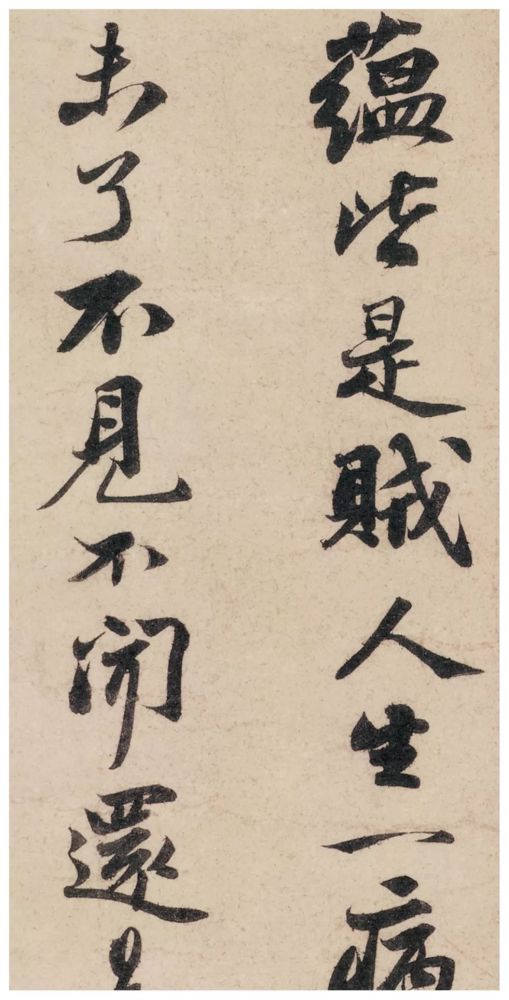 蘊些是賊人生一病
未了不見不聞還